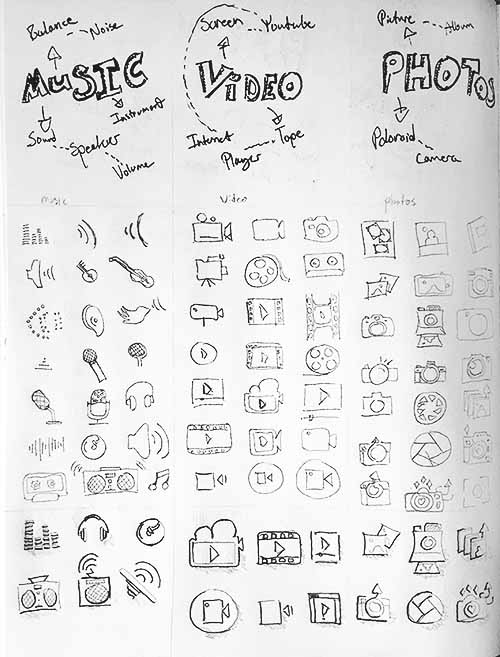 Balance
Noise
MUSIC
Instrument
Sound
Speaker
Volume
Screen
Youtube
VIDEO
Internet
Tape
Player
Picture
Album
PHOTOS
Polaroid
Camera
music
Video
photos